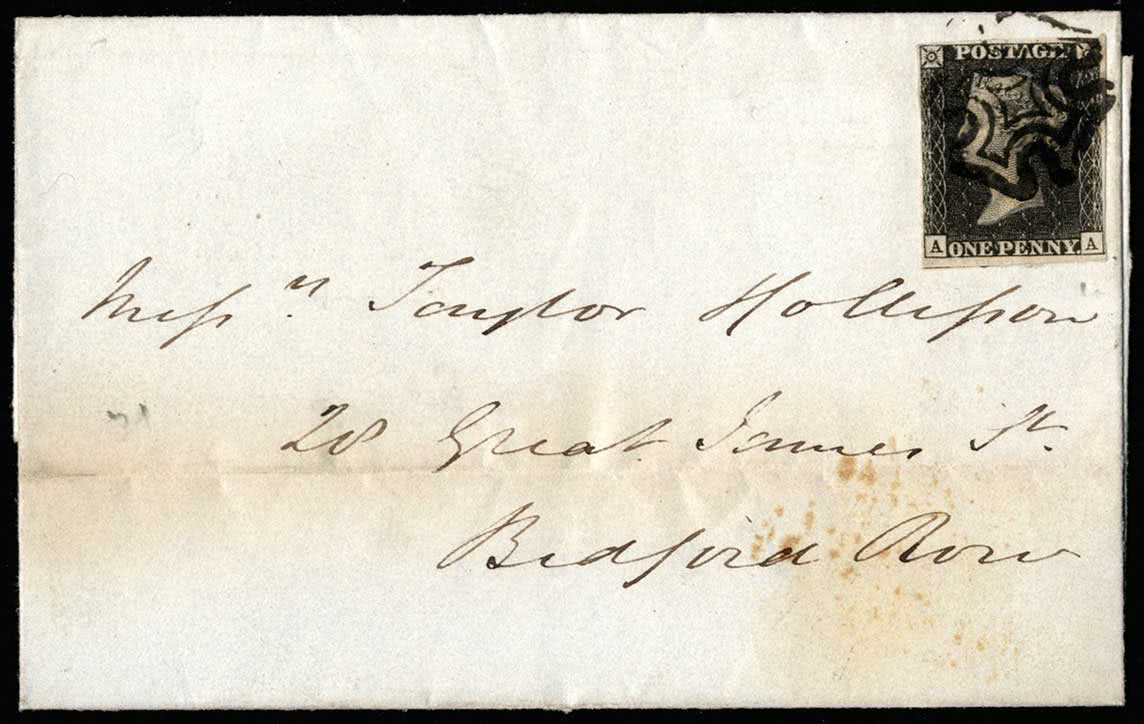 POSTAGE
A ONE PENNY. A
Messrs Taylor Hollisson
28 Great James St.
Bedford Row